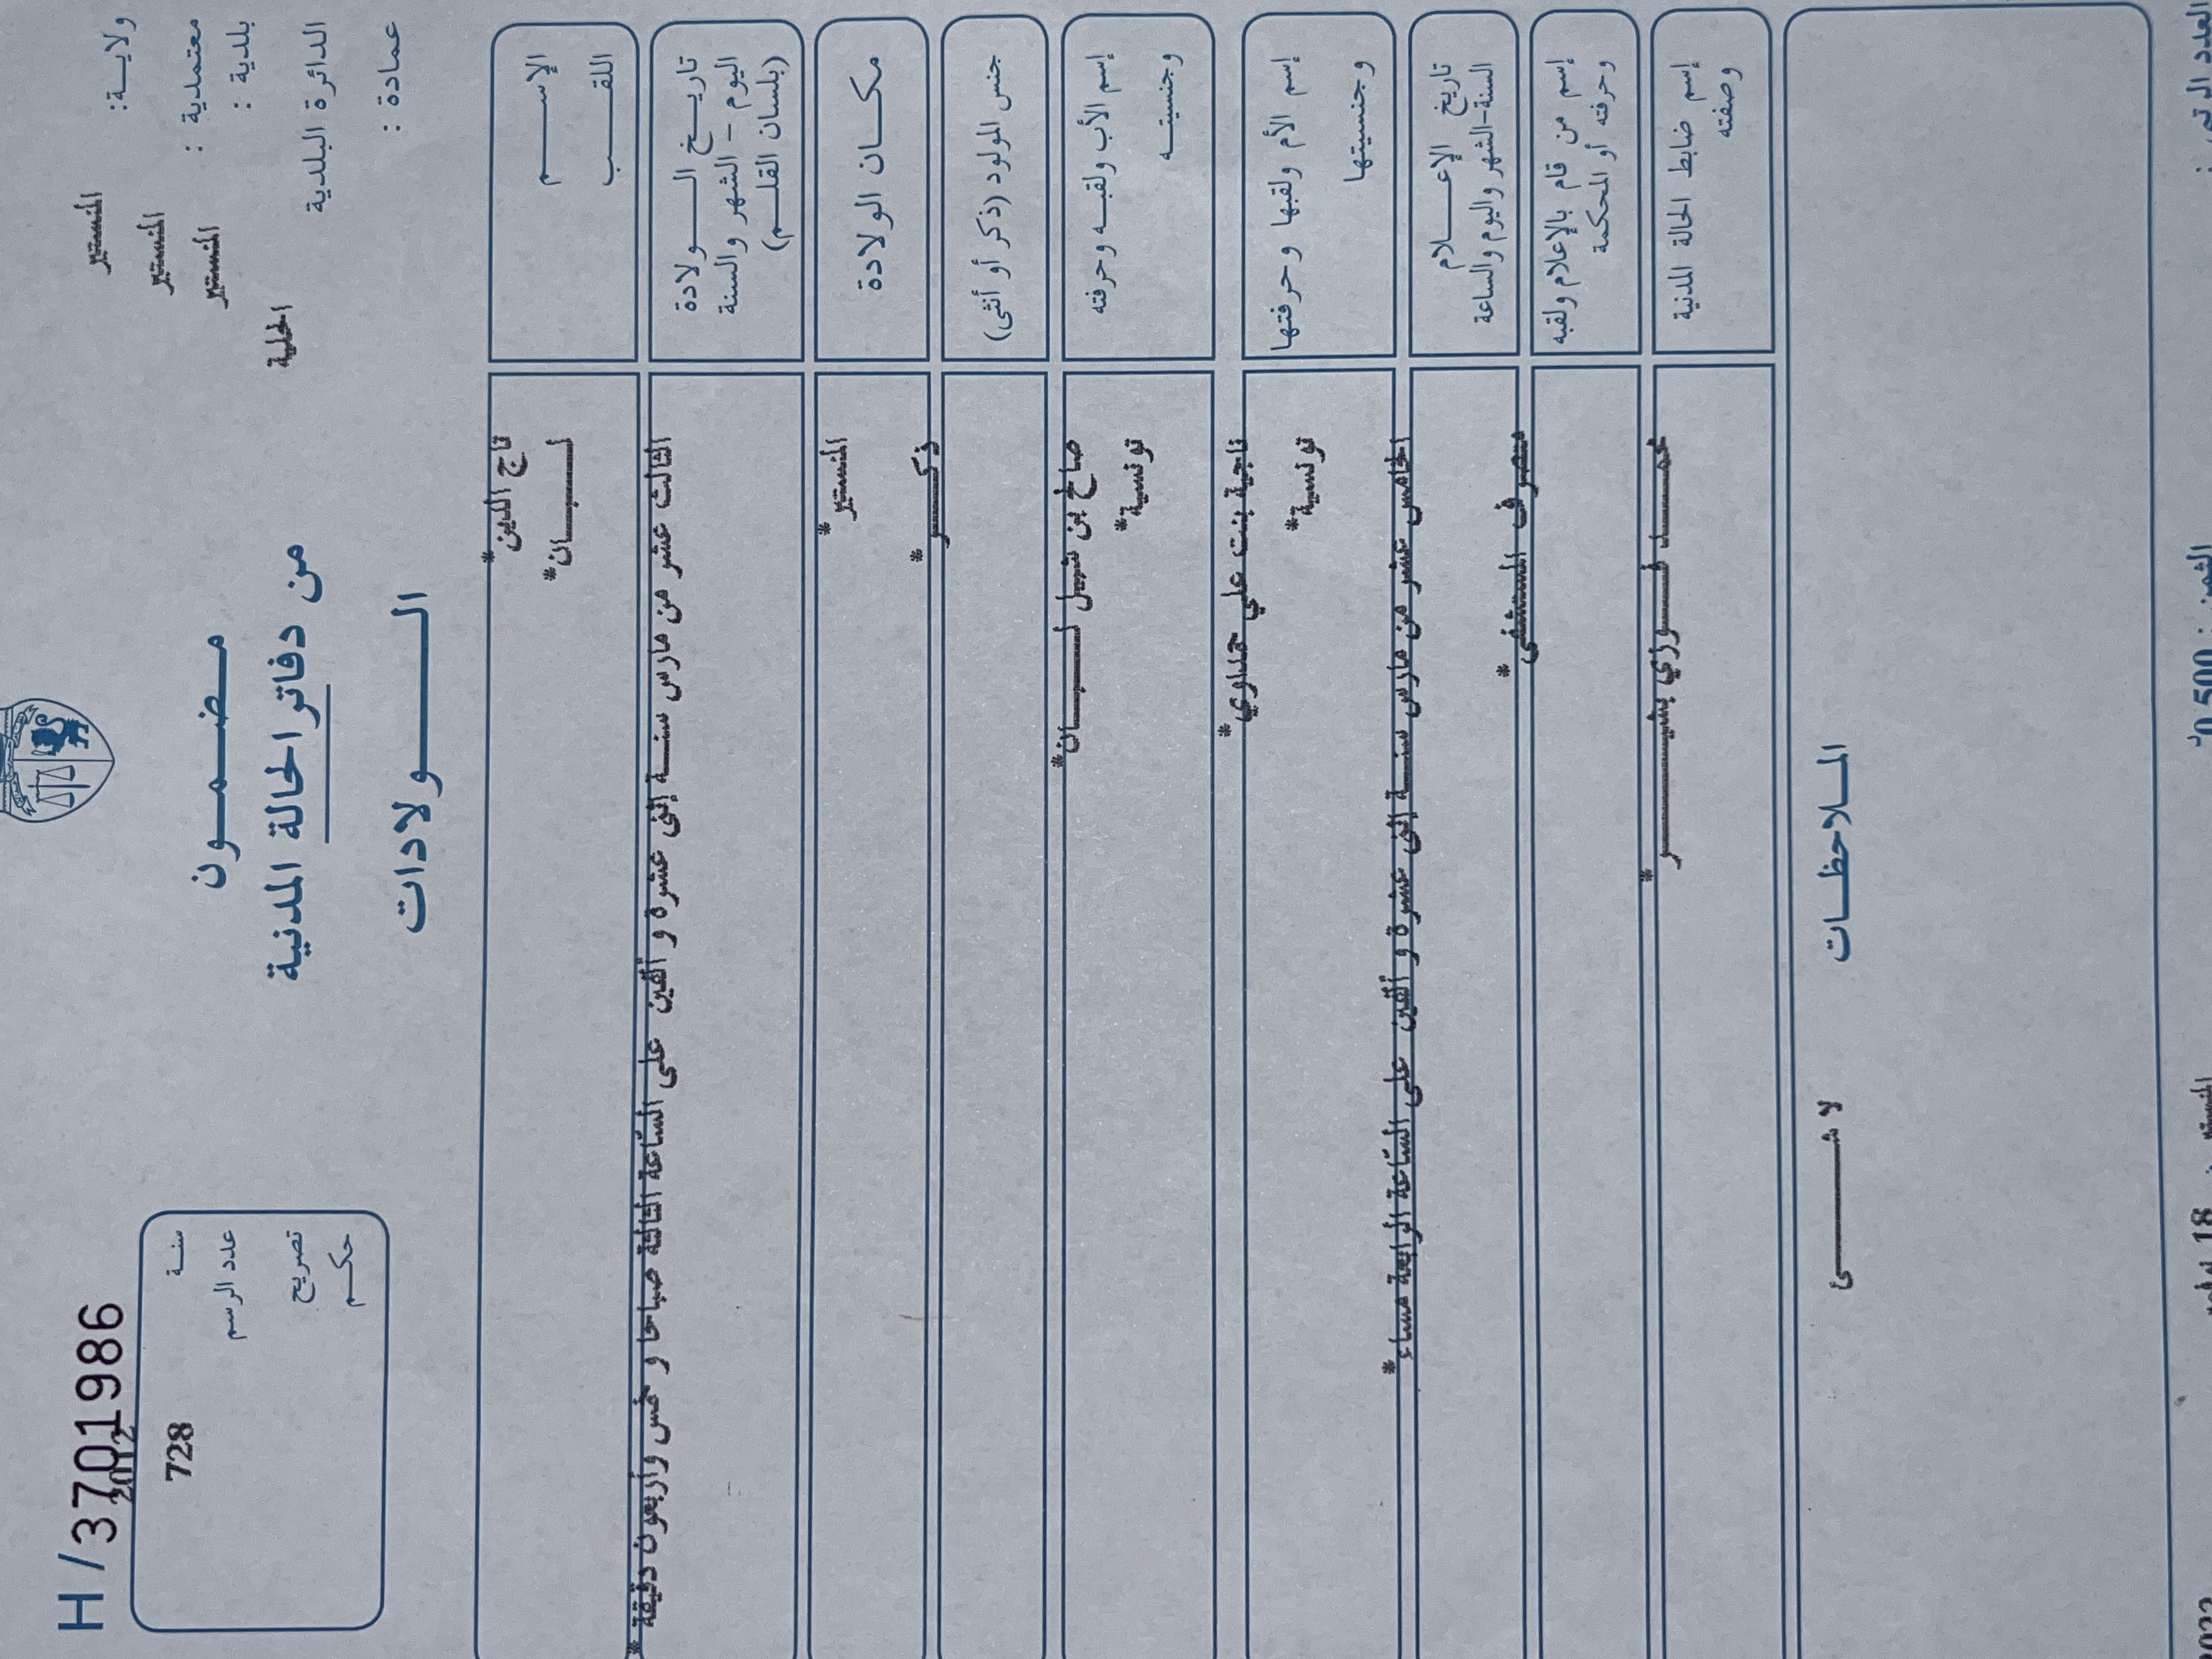 ولاية: المنستير
معتمدية : المنستير
بلدية : المنستير
الدائرة البلدية المحلية
عمادة :
مضمون
من دفاتر الحالة المدنية
الولادات
H / 3701986
سنة 2012
عدد الرسم 728
تصريح
حكم
الإسم تاج الدين*
اللقب لبان*
تاريخ الولادة
اليوم - الشهر والسنة
(بلسان القلم)
الثالث عشر من مارس سنة إثنى عشرة و ألفين على الساعة الثالثة صباحا و خمس وأربعون دقيقة*
مكان الولادة المنستير*
جنس المولود (ذكر أو أنثى) ذكر*
إسم الأب ولقبه وحرفته صالح بن نبيل لبان*
وجنسيته تونسية*
إسم الأم ولقبها وحرفتها ناجية بنت علي حمداوي*
وجنسيتها تونسية*
تاريخ الإعلام
السنة-الشهر واليوم والساعة
الخامس عشر من مارس سنة إثنى عشرة و ألفين على الساعة الرابعة مساء*
إسم من قام بالإعلام ولقبه
وحرفته أو المحكمة
متصرف المستشفى*
إسم ضابط الحالة المدنية
وصفته
محمد فوزي بشير*
الملاحظات
لا شئ
العدد الرتبي :
الثمن : 0,500
18